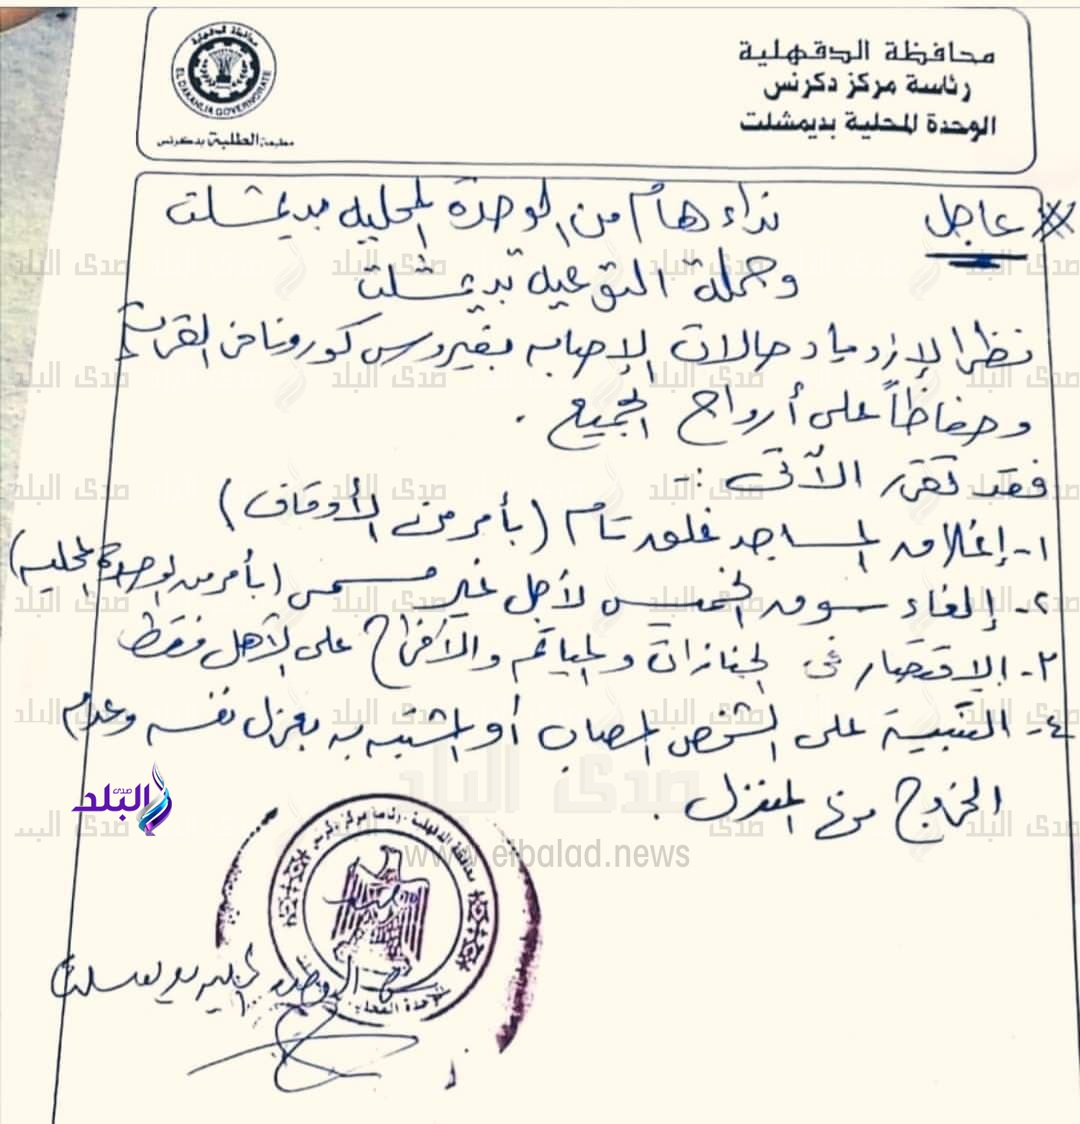 محافظة الدقهلية
رئاسة مركز دكرنس
الوحدة المحلية بديمشلت
EL DAKAHLIA GOVERNORATE
مطبعة الطلبة بدكرنس
عاجل نداء هام من الوحدة المحلية بديمشلت
وحملة التوعية بديمشلت
نظرا لإزدياد حالات الإصابه بفيروس كورونا فى القرية
وحفاظاً على أرواح الجميع .
فقد تقرر الآتى :-
١- إغلاق المساجد غلق تام (بأمر من الأوقاف)
٢- إلغاء سوق الخميس لأجل غير مسمى (بأمر من الوحدة المحليه)
٣- الإقتصار فى الجنازات والمياتم والأفراح على الأهل فقط
٤- التنبية على الشخص المصاب أو المشتبه به بعزل نفسه وعدم
الخروج من المنزل .
صدى البلد
www.elbalad.news
محافظة الدقهلية - رئاسة مركز دكرنس